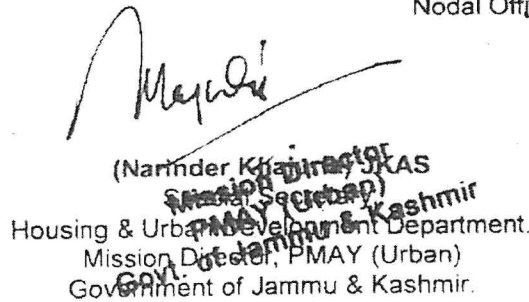 Nodal Offi
(Narinder Khajuria) JKAS
Special Secretary
Housing & Urban Development Department.
Mission Director, PMAY (Urban)
Government of Jammu & Kashmir.
Mission Director
PMAY (Urban)
Govt. of Jammu & Kashmir